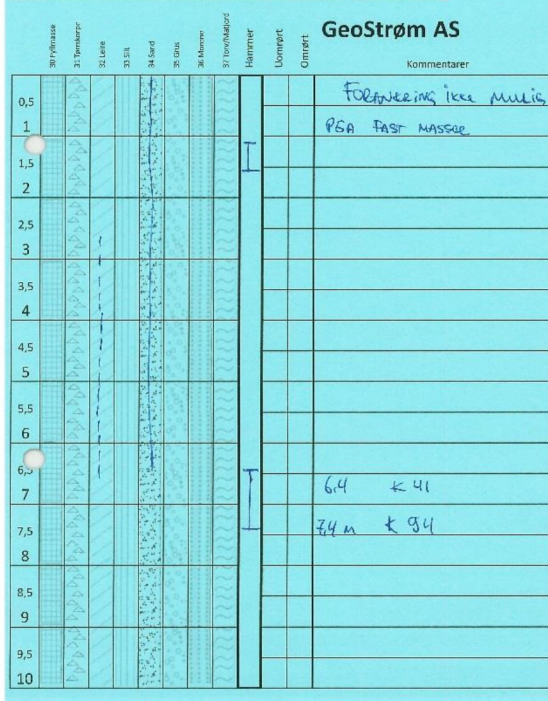 GeoStrøm AS
30 Fyllmasse
31 Tørrskorpe
32 Leire
33 Silt
34 Sand
35 Grus
36 Morene
37 Torv/Matjord
Hammer
Uomrørt
Omrørt
Kommentarer
0,5
1
1,5
2
2,5
3
3,5
4
4,5
5
5,5
6
6,5
7
7,5
8
8,5
9
9,5
10
ikke mulig
PGA FAST MASSER
6,4 K 41
7,4 m K 94